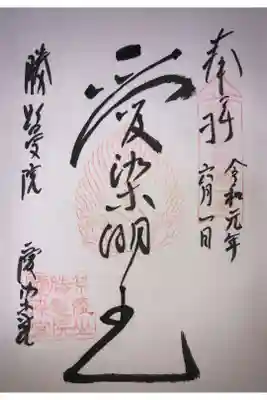 奉拝
令和元年
六月一日
愛染明王
勝鬘院
愛染堂